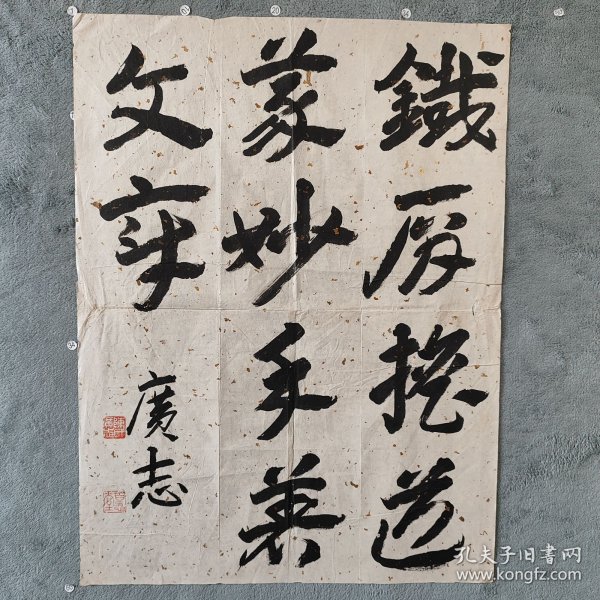 鐵肩擔道
義妙手著
文章
廣志
孔夫子旧书网
www.kongfz.com